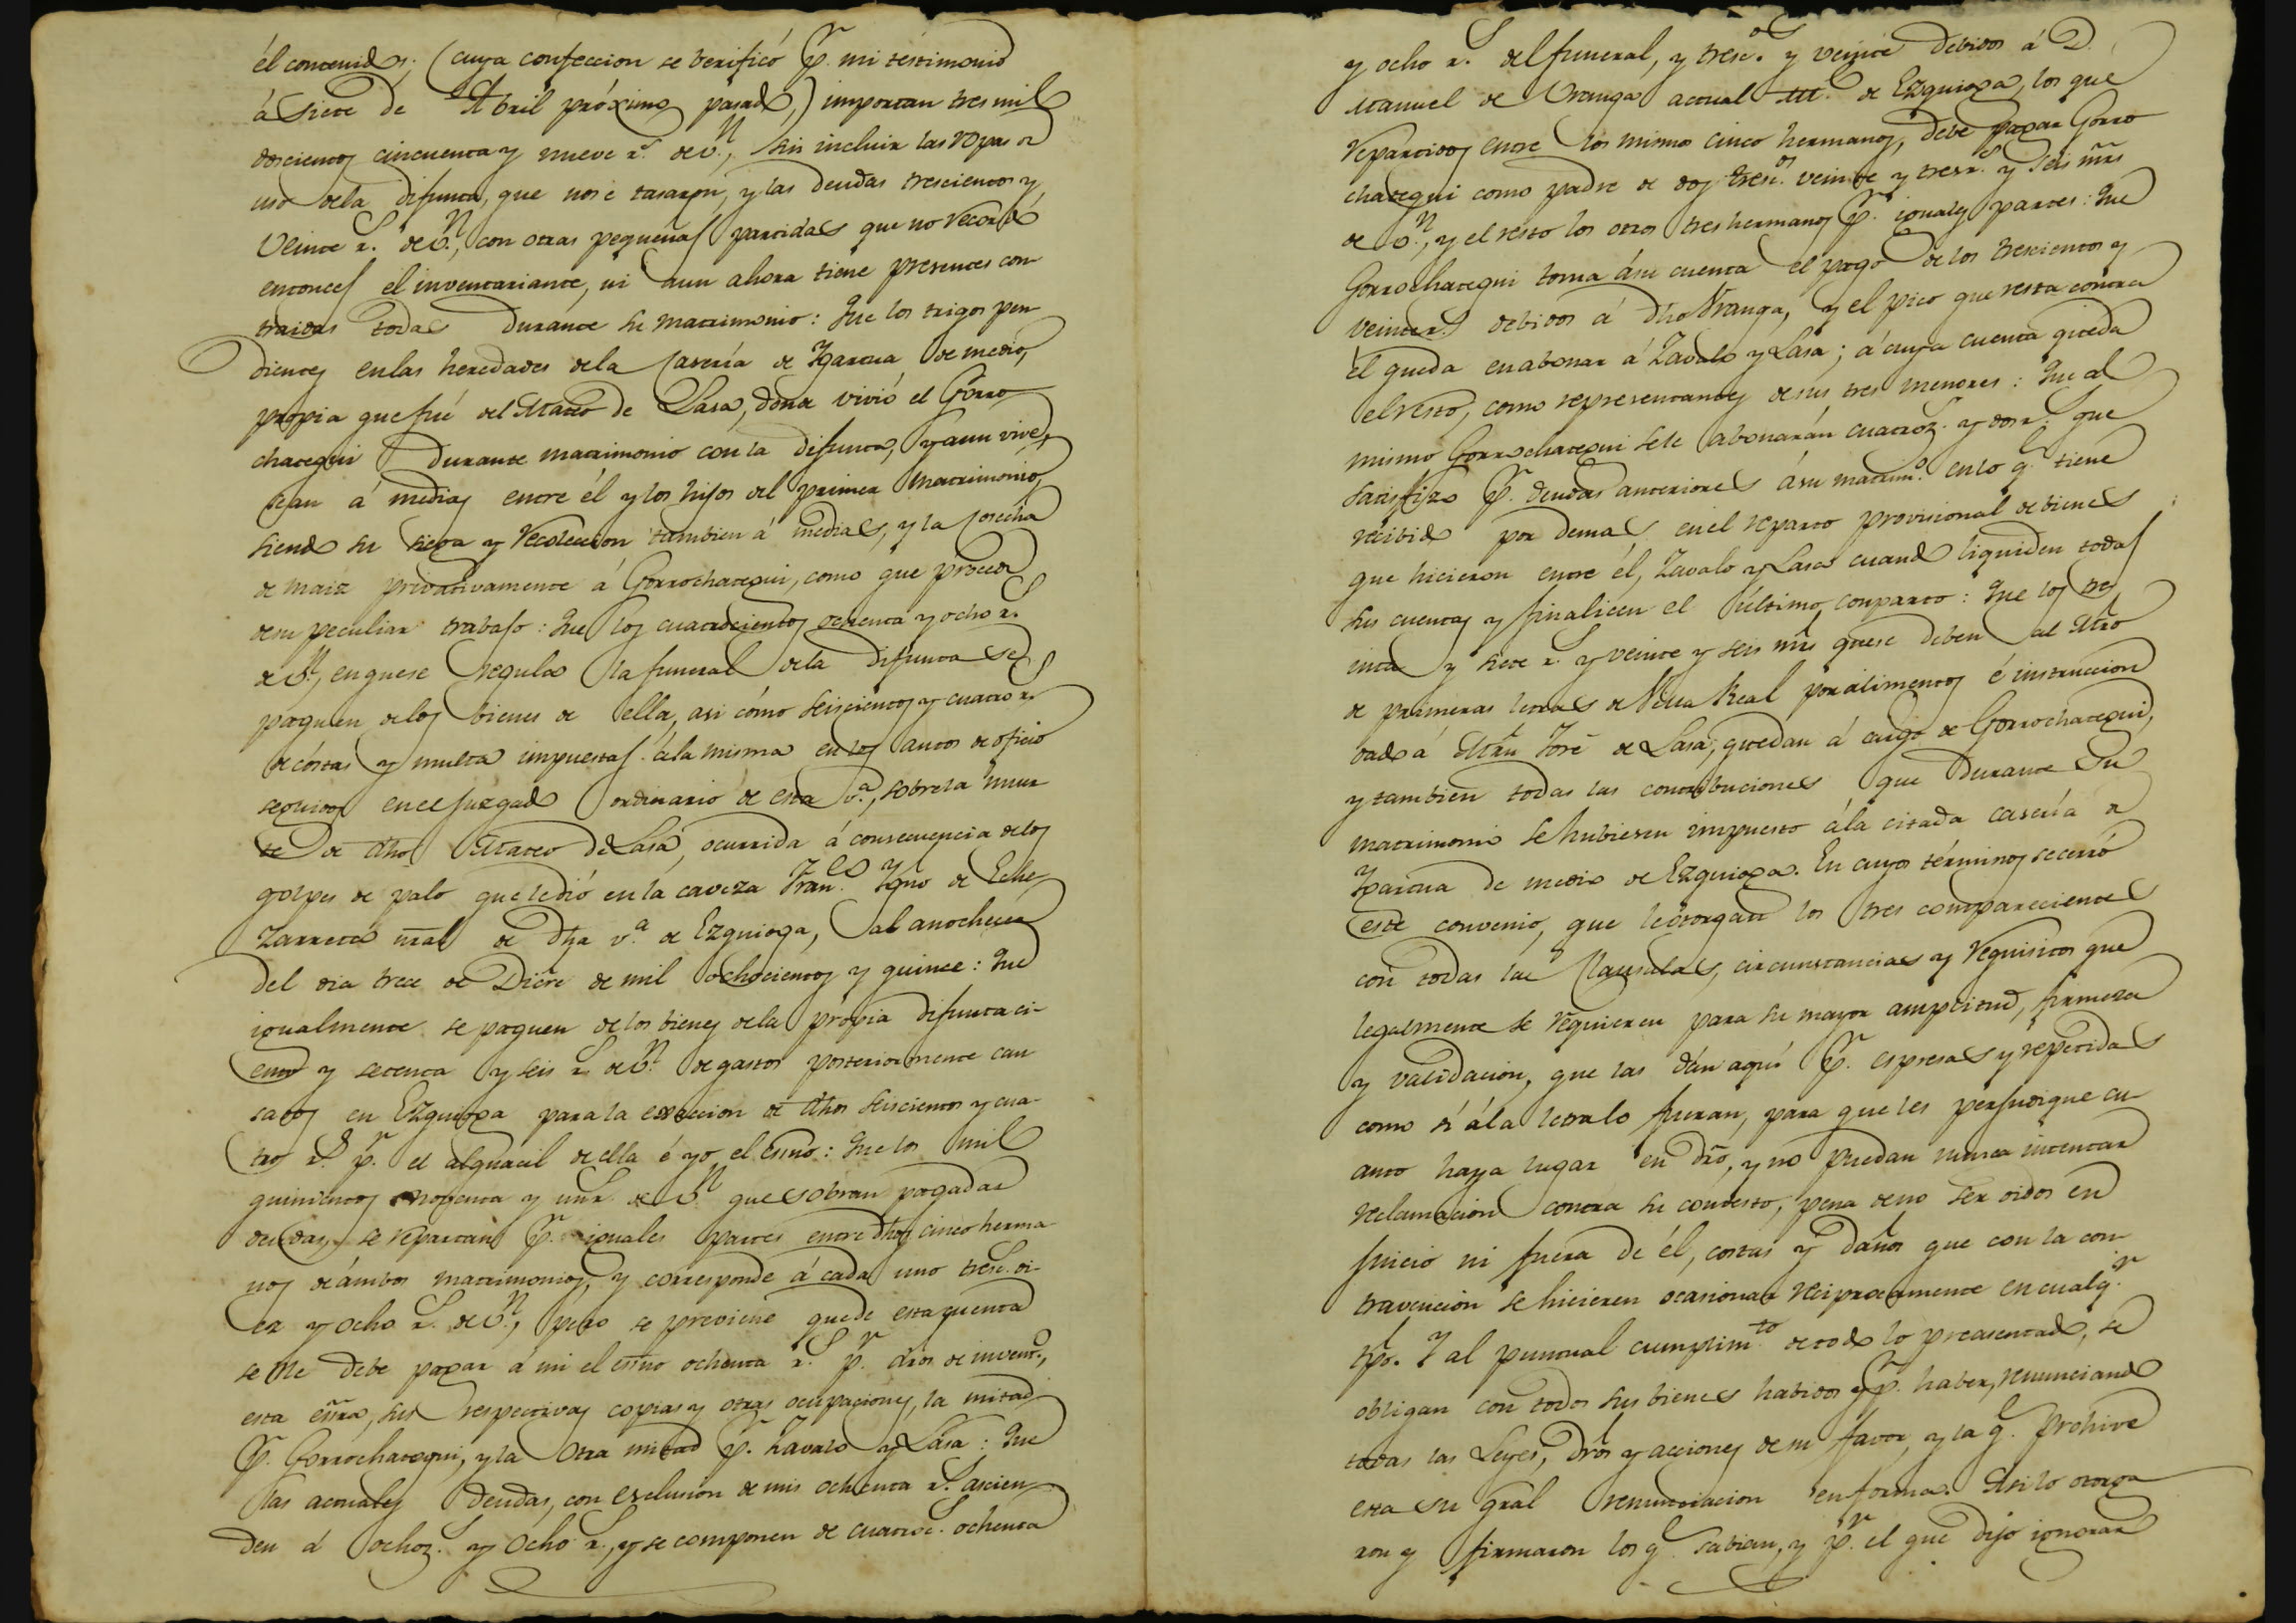 él contenidos; (cuya confeccion se verificó pr. mi testimonio
á siete de Abril próximo pasado,) importan tres mil
doscientos cincuenta y nueve rs. de vn., sin incluir las ropas de
uso dela difunta, que nose tasaron, y las deudas trescientos y
veinte rs. de vn., con otras pequeñas partidas que no recordó
entonces el inventariante, ni aun ahora tiene presentes con
traidas todas durante su matrimonio: Que los trigos pen
dientes enlas heredades dela Casería de Igartua de medio,
propia que fué del Mateo de Lasa, donde vivió el Gorro
chategui durante matrimonio con la difunta, y aun vive,
sean á medias entre él y los hijos del primer matrimonio,
siendo su siega y recoleccion tambien á medias, y la cosecha
de maiz privativamente á Gorrochategui, como que procede
desu peculiar trabajo: Que los cuatrocientos ochenta y ocho rs.
de vn., en quese regula la funeral dela difunta se
paguen delos bienes de ella, asi cómo seiscientos y cuatro rs.
de cóstas y multa impuestas ála misma en los autos de oficio
seguidos enel juzgado ordinario de esta va., sobre la muer
te de dho Mateo de Lasa, ocurrida á consecuencia delos
golpes de palo que ledió en la caveza Franco. Ygno de Eche
zarreta nral de dha va. de Ezquioga, al anochecer
del dia trece de Dicre de mil ochocientos y quince: Que
igualmente se paguen delos bienes dela própia difunta ci-
ento y setenta y seis rs. de vn. de gastos posteriormente cau
sados en Ezquioga para la exaccion de dhos seiscientos y cua-
tro rs. pr. el alguacil de ella é yo el Esno: Que los mil
quinientos noventa y un rs. de vn. que sobran pagadas
deudas, se repartan pr. iguales partes entre dhos cinco herma
nos de ámbos matrimonios, y corresponde á cada uno tresc. di-
ez y ocho rs. de vn., pero se previene quede esta cuenta
se me debe pagar á mi el esno ochenta rs. pr. dros. de invento.,
esta esra, sus respectivas copias y otras ocupaciones, la mitad
pr. Gorrochategui, y la otra mitad pr. Zavalo y Lasa: Que
las actuales deudas, con exclusion de mis ochenta rs. ascien
den á ochoz. y ocho rs., y se componen de cuatroc. ochenta
y ocho rs. del funeral, y tresc.os y veinte debidos á D.
Manuel de Uranga actual M. de Ezquioga, los que
repartidos entre los mismos cinco hermanos, debe pagar Gorro
chategui como padre de dos tresc.os veinte y tres rs. y seis mrs
de vn., y el resto los otros tres hermanos pr. iguales partes: Que
Gorrochategui toma ásu cuenta el pago delos trescientos y
veinte rs. debidos á dho Uranga, y el pico que resta contra
él queda en abonar á Zavalo y Lasa; á cuya cuenta queda
el resto, como representantes de sus tres menores: Que al
mismo Gorrochategui sele abonarán cuatroz. y dos rs. que
satisfizo pr. deudas anteriores ásu matrimo. en lo q. tiene
recibido por demas en el reparto provisional de bienes
que hicieron entre él, Zavalo y Lasa cuando liquiden todas
sus cuentas y finalicen el último conparto: Que los tre
inta y siete rs. y veinte y seis mrs quese deben al Mtro
de primeras letras de Villa Real por alimentos é instruccion
dada á Mrn José de Lasa, quedan á cargo de Gorrochategui,
y tambien todas las contribuciones que durante su
matrimonio se hubiesen impuesto ála citada casería de
Igartua de medio de Ezquioga. En cuyos términos se cerró
este convenio, que le otorgan los tres comparecientes
con todas las clausulas, circunstancias y requisitos que
legalmente se requieren para su mayor amplitud, firmeza
y validacion, que las dán aquí pr. espresas y repetidas
como si ála letra lo fueran, para que les perjudique cu-
anto haya lugar en dro, y no puedan nunca intentar
reclamacion contra su contesto, pena deno ser oidos en
juicio ni fuera de él, costas y daños que con la con-
travencion se hicieren ocasionar reciprocamente en cualqr.
tpo. Y al puntual cumplimto. de todo lo preasentado, se
obligan con todos sus bienes habidos y pr. haber, renunciando
todas las Leyes, dros y acciones de su favor, y la q. prohive
esta su gral renunciacion en forma. Asi lo otorga
ron y firmaron los q. sabian, y pr. el que dijo ignorar